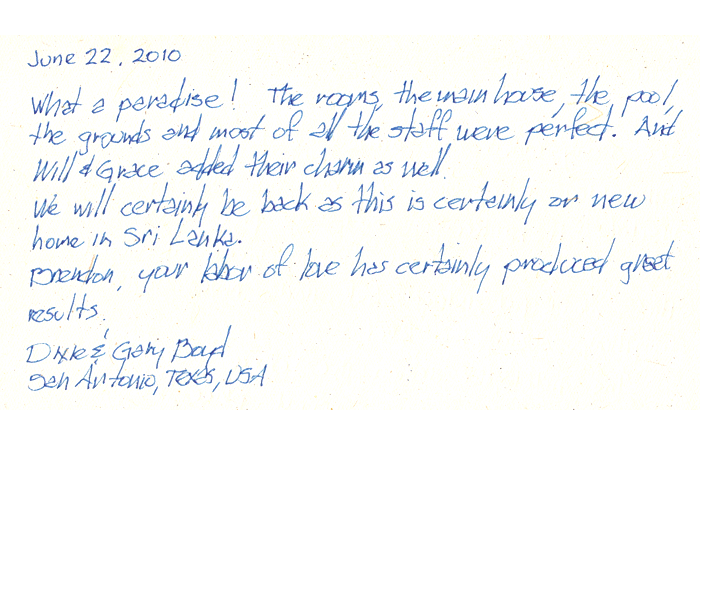 June 22, 2010
What a paradise! The rooms, the main house, the pool,
the grounds and most of all the staff were perfect! And
Will & Grace added their charm as well.
We will certainly be back as this is certainly or new
home in Sri Lanka.
Brendon, your labor of love has certainly produced great
results.
Dixie & Gary Boyd
San Antonio, Texas, USA